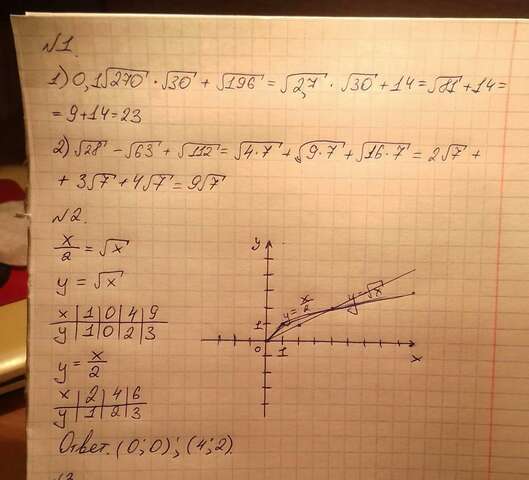 №1.
1) 0,1√270 · √30 + √196 = √2,7 · √30 + 14 = √81 + 14 =
= 9 + 14 = 23
2) √28 - √63 + √112 = √4·7 + √9·7 + √16·7 = 2√7 +
+ 3√7 + 4√7 = 9√7
№2.
x/2 = √x
y = √x
x | 1 | 0 | 4 | 9
y | 1 | 0 | 2 | 3
y = x/2
x | 2 | 4 | 6
y | 1 | 2 | 3
y
y = x/2
y = √x
1
0
1
x
Ответ. (0;0); (4;2).